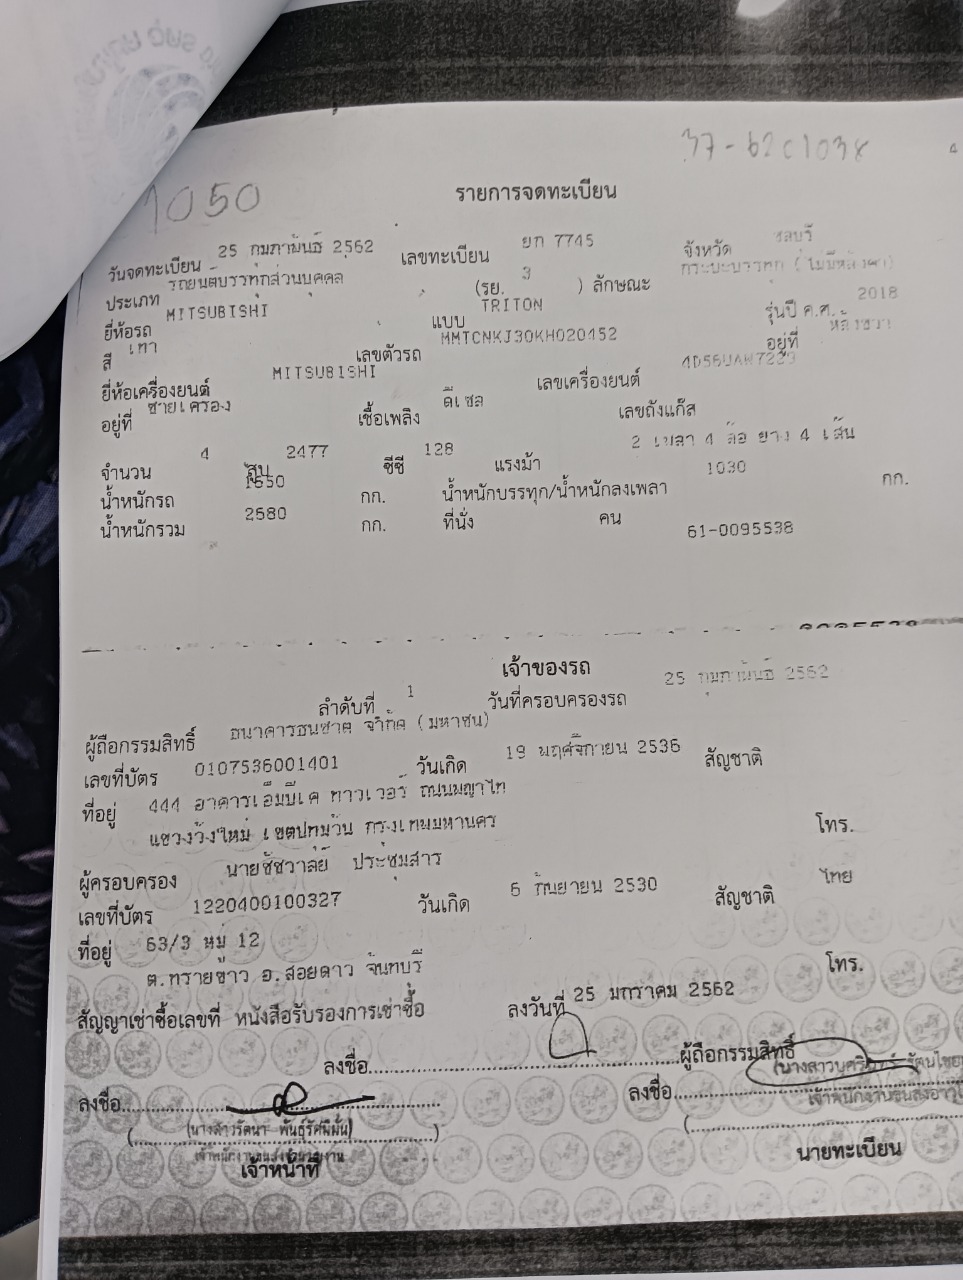 37-62c1038
4
1050
รายการจดทะเบียน
วันจดทะเบียน 25 กุมภาพันธ์ 2562 เลขทะเบียน ยก 7745 จังหวัด ชลบุรี
ประเภท รถยนต์บรรทุกส่วนบุคคล (รย. 3 ) ลักษณะ กระบะบรรทุก (ไม่มีหลังคา)
ยี่ห้อรถ MITSUBISHI แบบ TRITON รุ่นปี ค.ศ. 2018
สี เทา เลขตัวรถ MMTCNKJ30KH020452 อยู่ที่ หลังขวา
ยี่ห้อเครื่องยนต์ MITSUBISHI เลขเครื่องยนต์
อยู่ที่ ซ้ายเครื่อง เชื้อเพลิง ดีเซล เลขถังแก๊ส
จำนวน 4 สูบ 2477 ซีซี 128 แรงม้า 2 เพลา 4 ล้อ ยาง 4 เส้น
น้ำหนักรถ 1550 กก. น้ำหนักบรรทุก/น้ำหนักลงเพลา 1030 กก.
น้ำหนักรวม 2580 กก. ที่นั่ง คน 61-0095538
เจ้าของรถ
ลำดับที่ 1 วันที่ครอบครองรถ 25 กุมภาพันธ์ 2562
ผู้ถือกรรมสิทธิ์ ธนาคารธนชาต จำกัด (มหาชน)
เลขที่บัตร 0107536001401 วันเกิด 19 พฤศจิกายน 2536 สัญชาติ
ที่อยู่ 444 อาคารเอ็มบีเค ทาวเวอร์ ถนนพญาไท
แขวงวังใหม่ เขตปทุมวัน กรุงเทพมหานคร โทร.
ผู้ครอบครอง นายชัชวาลย์ ประชุมสาร
เลขที่บัตร 1220400100327 วันเกิด 6 กันยายน 2530 สัญชาติ ไทย
ที่อยู่ 63/3 หมู่ 12
ต.ทรายขาว อ.สอยดาว จันทบุรี โทร.
สัญญาเช่าซื้อเลขที่ หนังสือรับรองการเช่าซื้อ ลงวันที่ 25 มกราคม 2562
ลงชื่อ ผู้ถือกรรมสิทธิ์
ลงชื่อ ลงชื่อ
(นางสาวรัตนา พันธุ์รัศมีมั่น)
เจ้าหน้าที่ นายทะเบียน